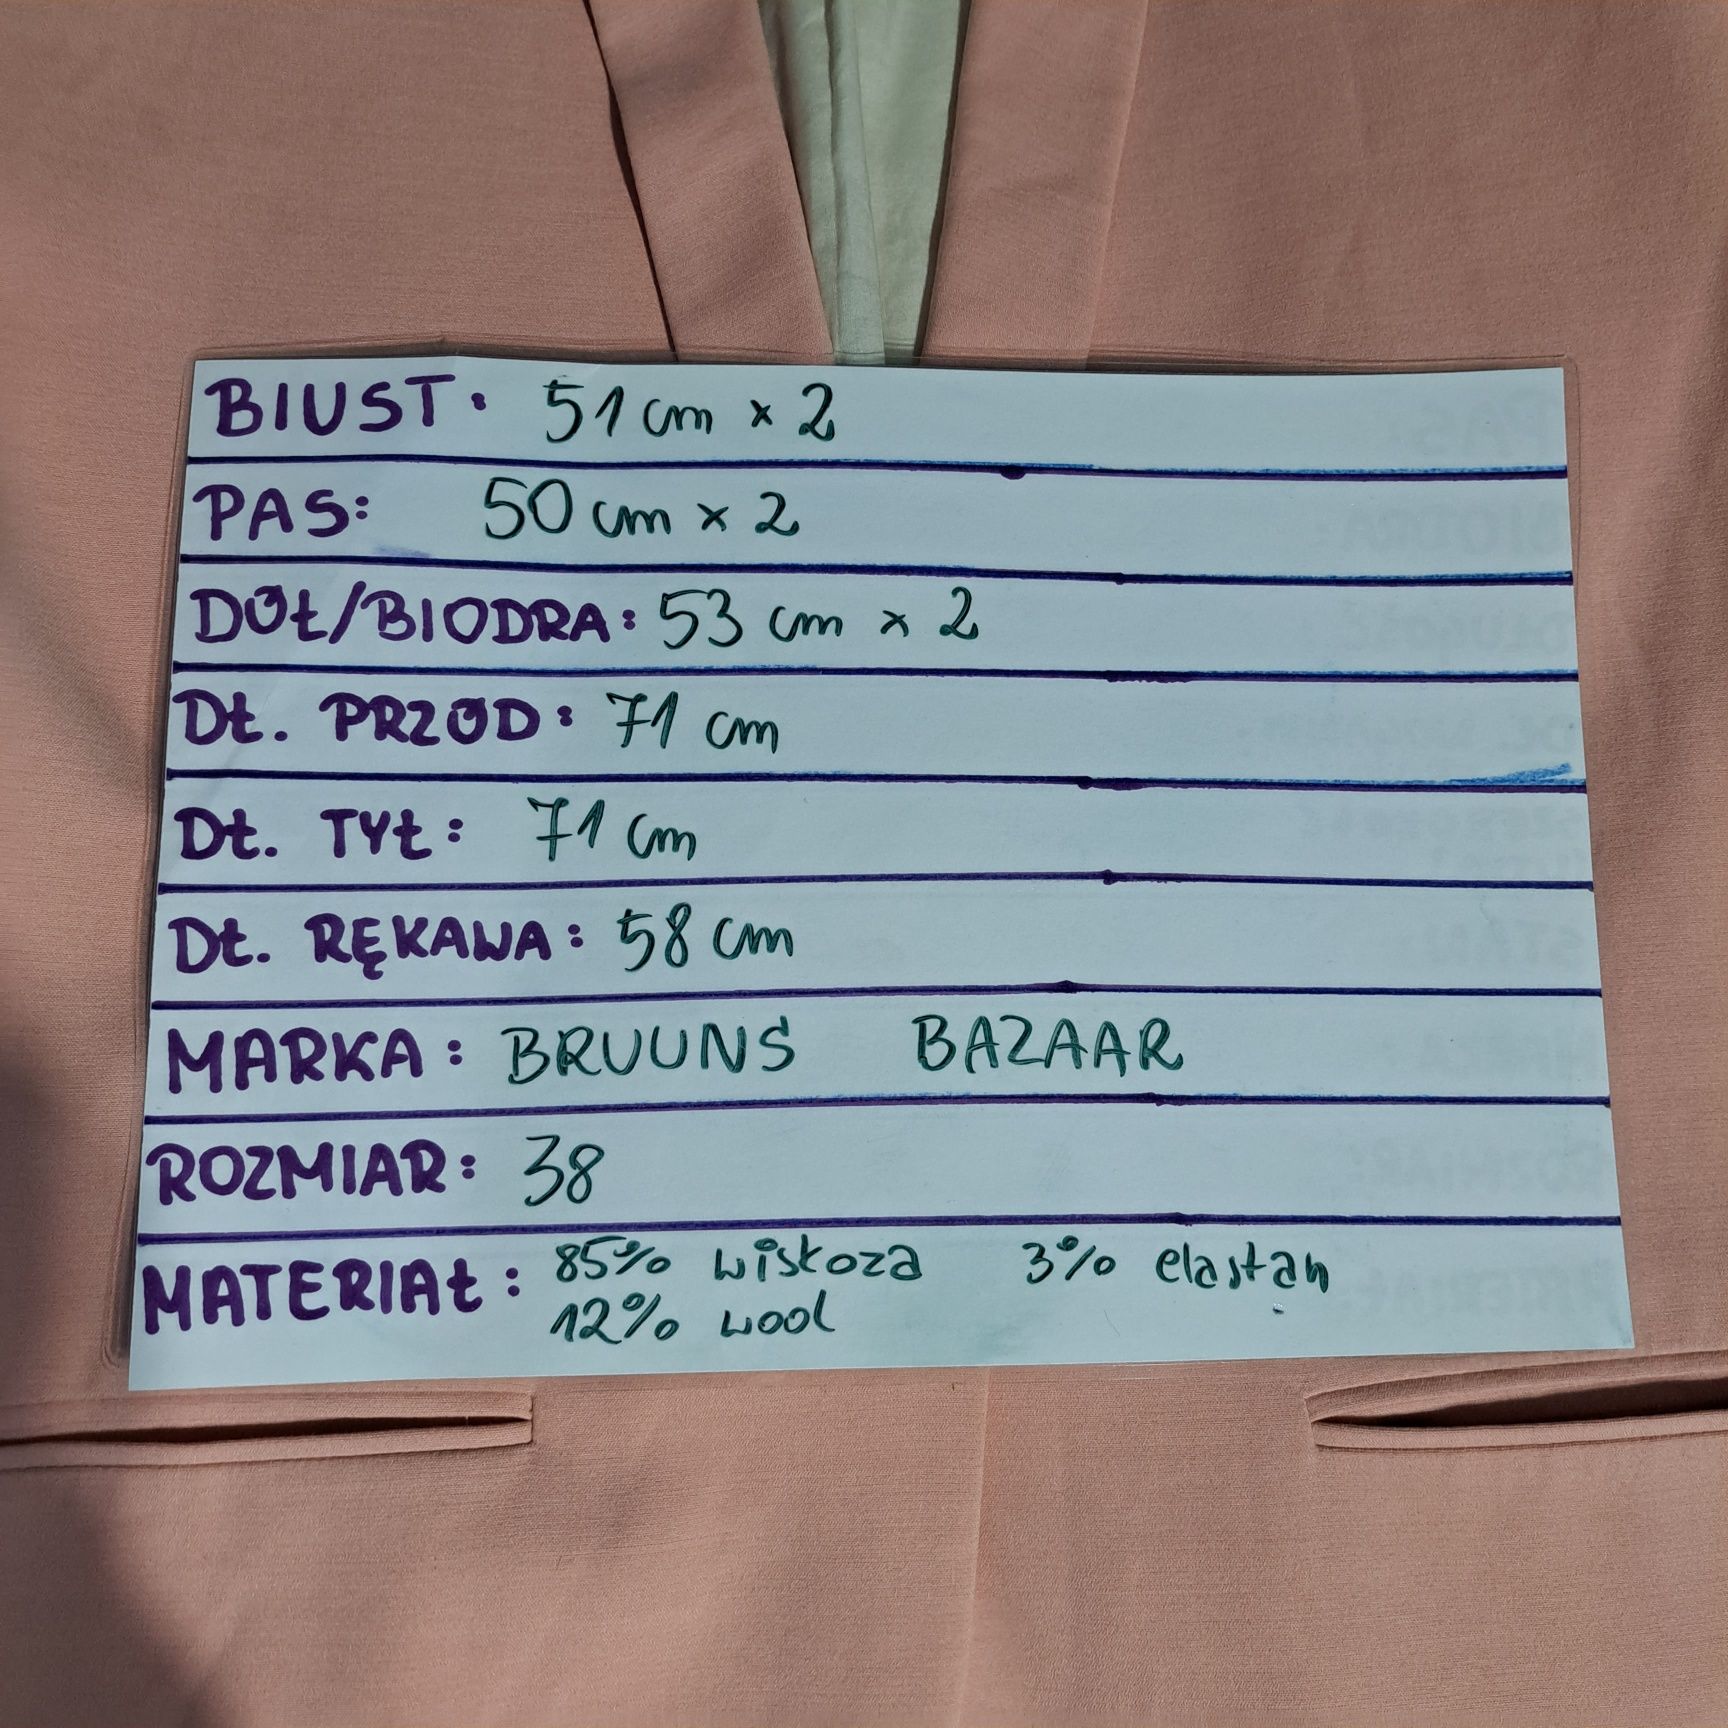 BIUST: 51 cm x 2
PAS: 50 cm x 2
DÓŁ/BIODRA: 53 cm x 2
DŁ. PRZÓD: 71 cm
DŁ. TYŁ: 71 cm
DŁ. RĘKAWA: 58 cm
MARKA: BRUUNS BAZAAR
ROZMIAR: 38
MATERIAŁ: 85% wiskoza 3% elastan
12% wool